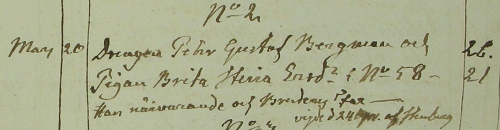 No 2.
May 20 Dragon Pehr Gustaf Bergman och 26.
Pigan Brita Stina Ersdr i No 58 - 21
Han närvarande och Brudens Far
vigde d 24 af Stenborg
No